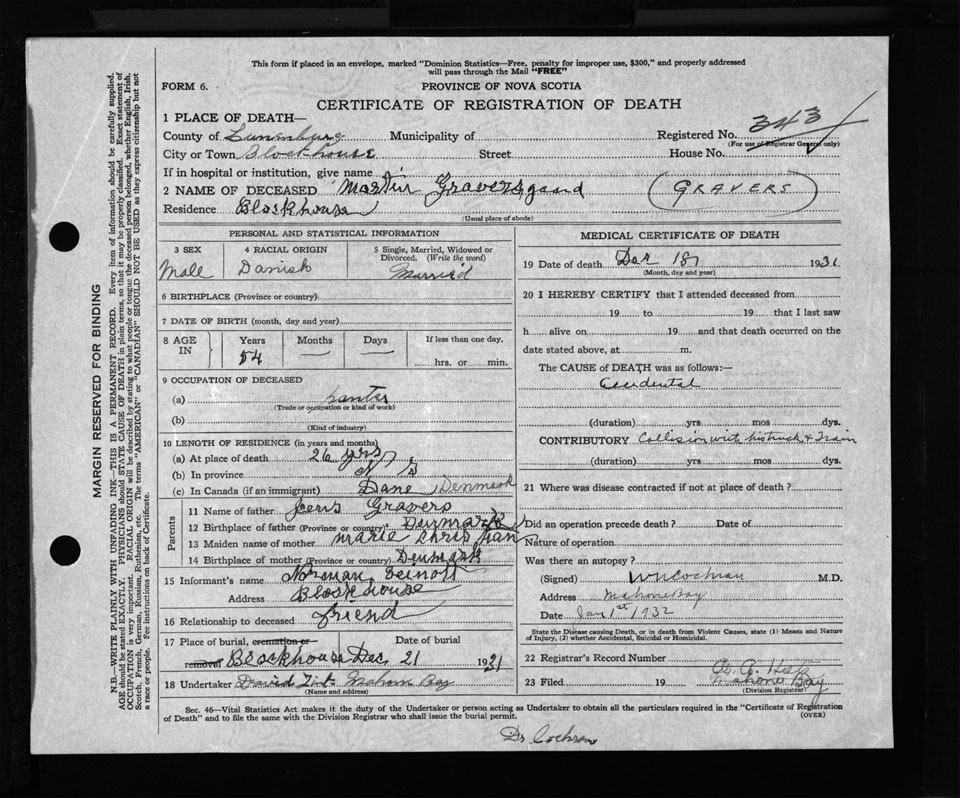 This form if placed in an envelope, marked "Dominion Statistics—Free, penalty for improper use, $300," and properly addressed
will pass through the Mail "FREE"
FORM 6.
PROVINCE OF NOVA SCOTIA
CERTIFICATE OF REGISTRATION OF DEATH
1 PLACE OF DEATH—
County of Lunenburg Municipality of Registered No. 343
(For use of Registrar General only)
City or Town Blockhouse Street House No.
If in hospital or institution, give name
2 NAME OF DECEASED Martin Graversgaard (GRAVERS)
Residence Blockhouse
(Usual place of abode)
PERSONAL AND STATISTICAL INFORMATION
3 SEX 4 RACIAL ORIGIN 5 Single, Married, Widowed or
Divorced. (Write the word)
Male Danish Married
6 BIRTHPLACE (Province or country)
7 DATE OF BIRTH (month, day and year)
8 AGE Years Months Days If less than one day,
IN 54 — — hrs. or min.
9 OCCUPATION OF DECEASED
(a)
(Trade or occupation or kind of work)
(b)
(Kind of industry)
10 LENGTH OF RESIDENCE (in years and months)
(a) At place of death 26 yrs
(b) In province N S
(c) In Canada (if an immigrant) Dane Denmark
Parents
11 Name of father Jens Gravers
12 Birthplace of father (Province or country) Denmark
13 Maiden name of mother Marie
14 Birthplace of mother (Province or country) Denmark
15 Informant's name Norman
Address Blockhouse
16 Relationship to deceased friend
17 Place of burial, cremation or Date of burial
removal Blockhouse Dec 21 1931
18 Undertaker David Mahone Bay
(Name and address)
MEDICAL CERTIFICATE OF DEATH
19 Date of death Dec 18 1931
(Month, day and year)
20 I HEREBY CERTIFY that I attended deceased from
19 to 19 that I last saw
h alive on 19 and that death occurred on the
date stated above, at m.
The CAUSE of DEATH was as follows:—
Accidental
(duration) yrs mos dys.
CONTRIBUTORY Collision with truck & Train
(duration) yrs mos dys.
21 Where was disease contracted if not at place of death?
Did an operation precede death? Date of
Nature of operation
Was there an autopsy?
(Signed) W N Cochran M.D.
Address Mahone Bay
Date Jan 1st 1932
State the Disease causing Death, or, in death from Violent Causes, state (1) Means and Nature
of Injury, (2) whether Accidental, Suicidal or Homicidal.
22 Registrar's Record Number
23 Filed 19 Mahone Bay
(Division Registrar)
Sec. 46—Vital Statistics Act makes it the duty of the Undertaker or person acting as Undertaker to obtain all the particulars required in the "Certificate of Registration
of Death" and to file the same with the Division Registrar who shall issue the burial permit.
(OVER)
Dr Cochran
MARGIN RESERVED FOR BINDING
N.B.—WRITE PLAINLY WITH UNFADING INK—THIS IS A PERMANENT RECORD. Every item of information should be carefully supplied.
AGE should be stated EXACTLY. PHYSICIANS should STATE CAUSE OF DEATH in plain terms, so that it may be properly classified. Exact statement of
OCCUPATION is very important. RACIAL ORIGIN will be described by stating to what people or tongue the deceased person belonged, whether English, Irish,
Scotch, French, German, Russian, Ruthenian, etc. The terms "AMERICAN" or "CANADIAN" SHOULD NOT BE USED as they express citizenship but not
a race or people. See instructions on back of Certificate.